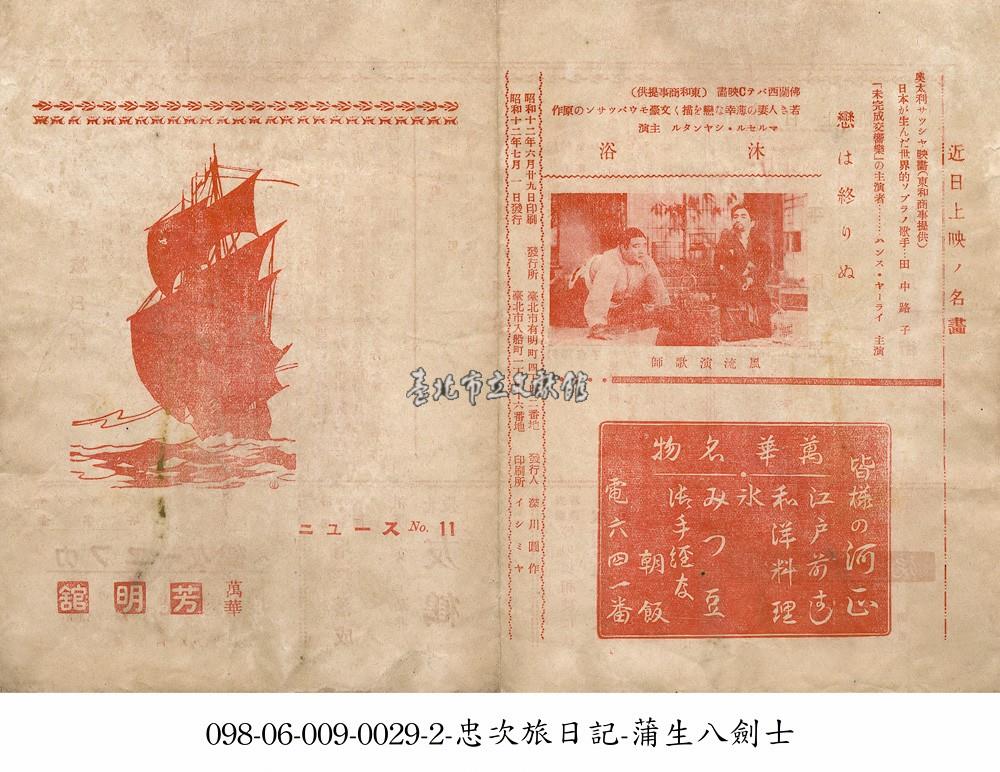 近日上映ノ名畫
奧太利サツシヤ映畫(東和商事提供)
日本が生んだ世界的ソプラノ歌手…田中路子
「未完成交響樂」の主演者………ハンス・ヤーライ 主演
戀は終りぬ
佛蘭西パテC映畫 (東和商事提供)
若き人妻の薄幸な戀を描く文豪モウパツサンの原作
マルセル・シヤンタル 主演
沐浴
風流演歌師
皆樣の河正
萬華名物
江戸前すし
和洋料理
氷
みつ豆
朝飯
電六四一番
昭和十二年六月廿九日印刷
昭和十二年七月一日發行
發行所 臺北市有明町四
番地
臺北市入船町
六番地
發行人 深川圓作
印刷所 イシミヤ
臺北市立文獻館
ニュース No. 11
萬華
芳明館
098-06-009-0029-2-忠次旅日記-蒲生八劍士